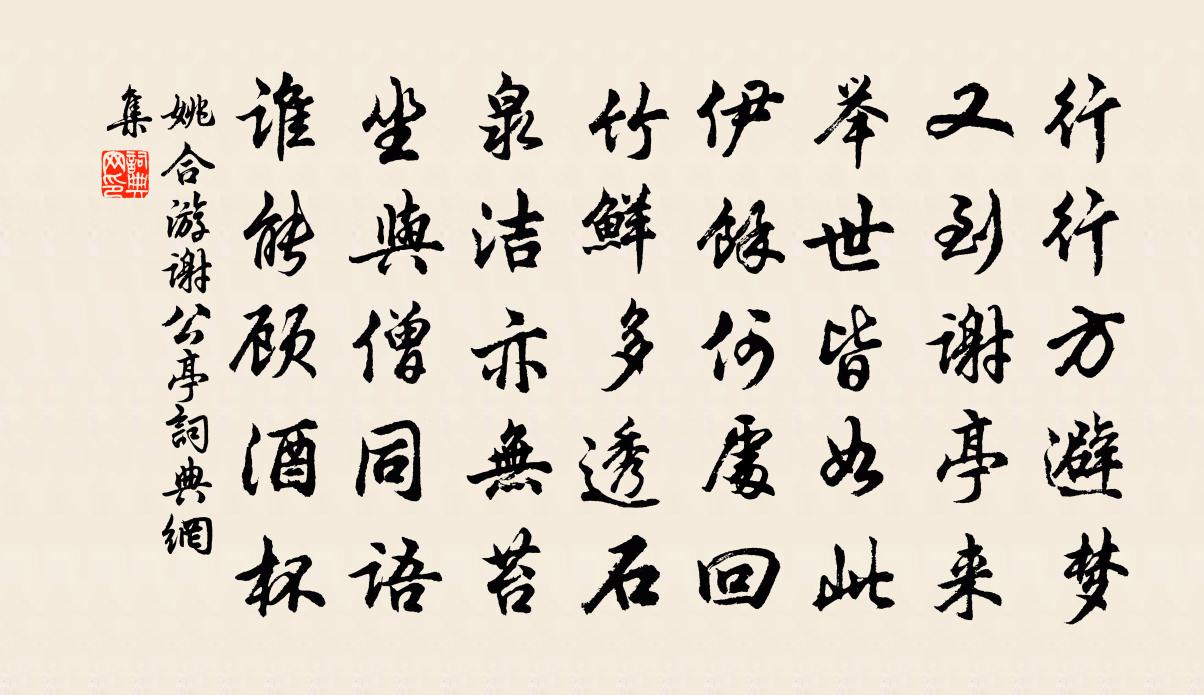 行行方避梦
又到谢亭来
举世皆如此
伊餘何處回
竹鮮多透石
泉洁亦無苔
坐與僧同语
谁能顾酒杯
姚合游谢公亭詞典網
集
詞典
网印